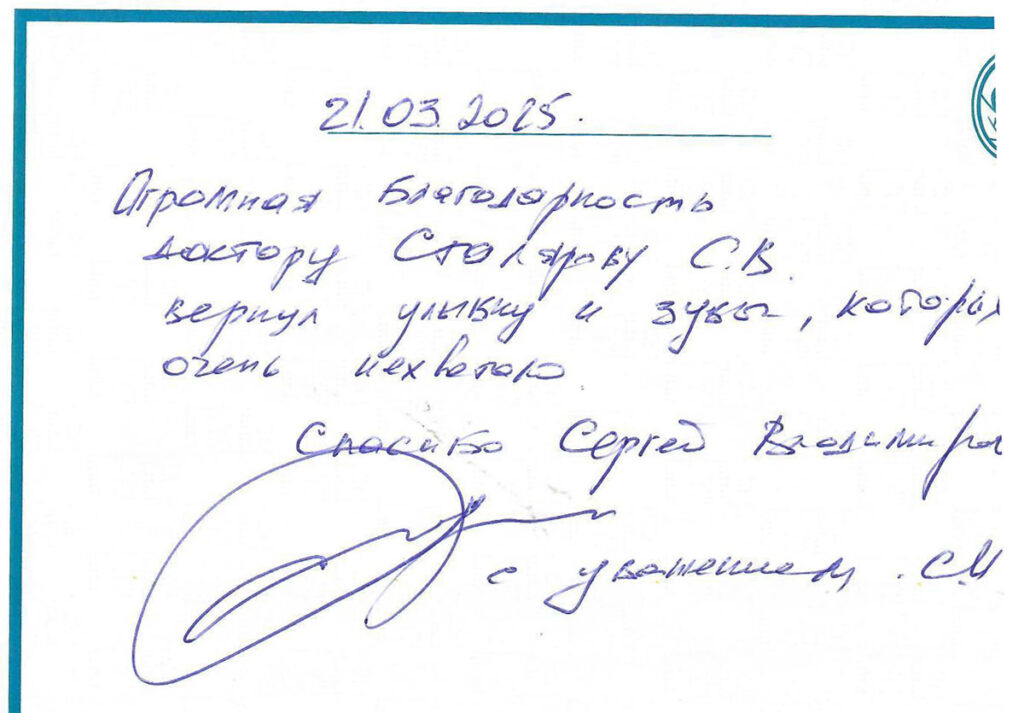 21.03.2025.
Огромная благодарность
доктору Столярову С.В.
вернул улыбку и зубы, которых
очень нехватало
Спасибо Сергей Владимиров
с уважением. СМ